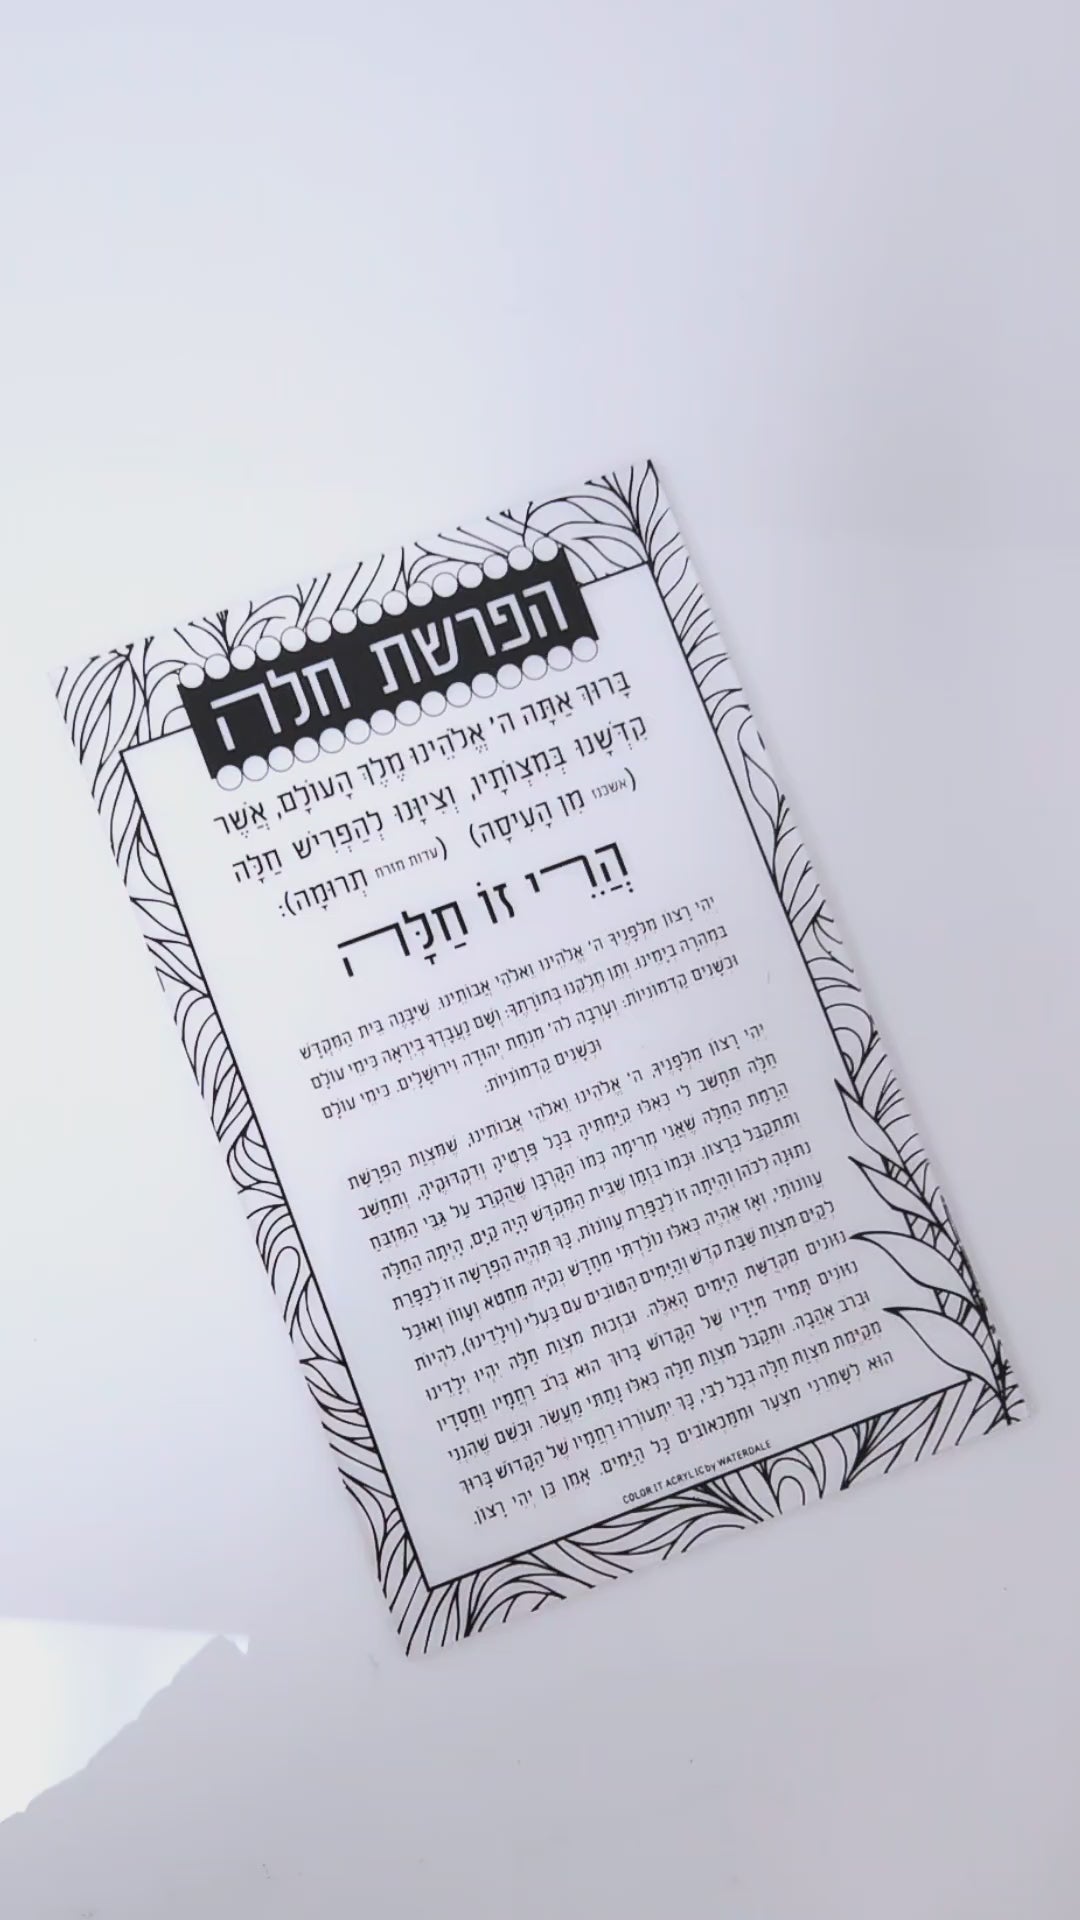 הפרשת חלה
בָּרוּךְ אַתָּה ה' אֱלֹהֵינוּ מֶלֶךְ הָעוֹלָם, אֲשֶׁר
קִדְּשָׁנוּ בְּמִצְוֹתָיו, וְצִיוָּנוּ לְהַפְרִישׁ חַלָּה
(אשכנז מִן הָעִיסָה) (עדות מזרח תְּרוּמָה):
הֲרֵי זוֹ חַלָּה
יְהִי רָצוֹן מִלְּפָנֶיךָ ה' אֱלֹהֵינוּ וֵאלֹהֵי אֲבוֹתֵינוּ. שֶׁיִּבָּנֶה בֵּית הַמִּקְדָּשׁ
בִּמְהֵרָה בְיָמֵינוּ. וְתֵן חֶלְקֵנוּ בְּתוֹרָתֶךָ: וְשָׁם נַעֲבָדְךָ בְּיִרְאָה כִּימֵי עוֹלָם
וּכְשָׁנִים קַדְמוֹנִיּוֹת: וְעָרְבָה לַה' מִנְחַת יְהוּדָה וִירוּשָׁלָיִם. כִּימֵי עוֹלָם
וּכְשָׁנִים קַדְמוֹנִיּוֹת:
יְהִי רָצוֹן מִלְּפָנֶיךָ, ה' אֱלֹהֵינוּ וֵאלֹהֵי אֲבוֹתֵינוּ, שֶׁמִּצְוַת הַפְרָשַׁת
חַלָּה תֵּחָשֵׁב לִי כְּאִלּוּ קִיַּמְתִּיהָ בְּכָל פְּרָטֶיהָ וְדִקְדּוּקֶיהָ, וְתֵחָשֵׁב
הֲרָמַת הַחַלָּה שֶׁאֲנִי מְרִימָה כְּמוֹ הַקָּרְבָּן שֶׁהֻקְרַב עַל גַּבֵּי הַמִּזְבֵּחַ
וְתִתְקַבֵּל בְּרָצוֹן. וּכְמוֹ בִּזְמַן שֶׁבֵּית הַמִּקְדָּשׁ הָיָה קַיָּם, הָיְתָה הַחַלָּה
נְתוּנָה לַכֹּהֵן וְהָיְתָה זוֹ לְכַפָּרַת עֲווֹנוֹת, כָּךְ תִּהְיֶה הַפְרָשָׁה זוֹ לְכַפָּרַת
עֲווֹנוֹתַי, וְאָז אֶהְיֶה כְּאִלּוּ נוֹלַדְתִּי מֵחָדָשׁ נְקִיָּה מֵחֵטְא וְעָווֹן וְאוּכַל
לְקַיֵּם מִצְוַת שַׁבַּת קֹדֶשׁ וְהַיָּמִים הַטּוֹבִים עִם בַּעְלִי (וִילָדֵינוּ), לִהְיוֹת
נִזּוֹנִים מִקְּדֻשַּׁת הַיָּמִים הָאֵלֶּה. וּבִזְכוּת מִצְוַת חַלָּה יִהְיוּ יְלָדֵינוּ
נִזּוֹנִים תָּמִיד מִיָּדָיו שֶׁל הַקָּדוֹשׁ בָּרוּךְ הוּא בְּרֹב רַחֲמָיו וַחֲסָדָיו
וּבְרֹב אַהֲבָה. וּתְקֻבַּל מִצְוַת חַלָּה כְּאִלּוּ נָתַתִּי מַעֲשֵׂר. וּכְשֵׁם שֶׁהִנְנִי
מְקַיֶּמֶת מִצְוַת חַלָּה בְּכָל לִבִּי, כָּךְ יִתְעוֹרְרוּ רַחֲמָיו שֶׁל הַקָּדוֹשׁ בָּרוּךְ
הוּא לְשָׁמְרֵנִי מִצַּעַר וּמִמַּכְאוֹבִים כָּל הַיָּמִים. אָמֵן כֵּן יְהִי רָצוֹן.
COLOR IT ACRYLIC by WATERDALE